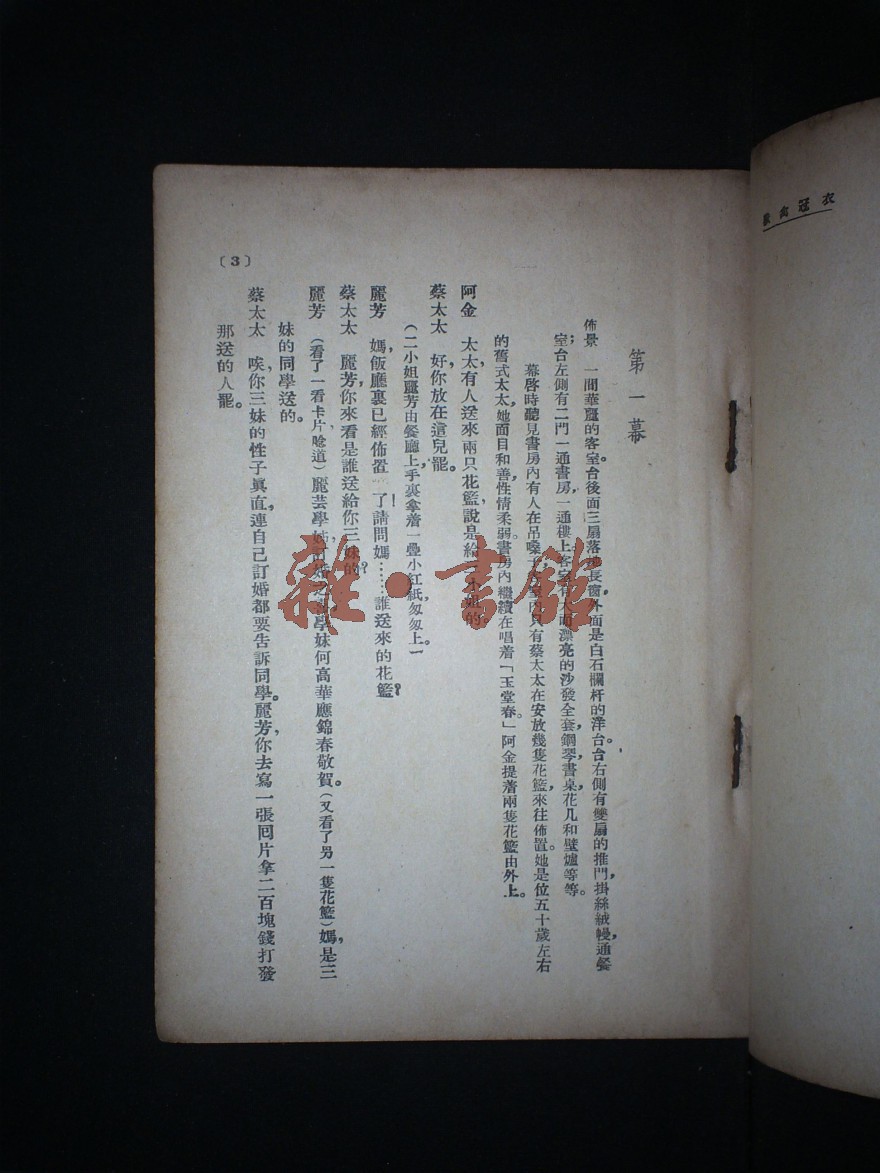 衣冠禽獸
第一幕
佈景　一間華麗的客室。台後面三扇落地長窗,外面是白石欄杆的洋台。台右側有雙扇的推門,掛絲絨幔,通餐
室;台左側有二門一通書房,一通樓上。客室有大而漂亮的沙發全套,鋼琴,書桌,花几和壁爐等等。
幕啓時聽見書房內有人在吊嗓子,客室內只有蔡太太在安放幾隻花籃,來往佈置。她是位五十歲左右
的舊式太太,她面目和善,性情柔弱。書房內繼續在唱着「玉堂春」。阿金提着兩隻花籃由外上。
阿金　太太,有人送來兩只花籃,說是給三小姐的。
蔡太太　好,你放在這兒罷。
(二小姐麗芳由餐廳上,手裏拿着一疊小紅紙匆匆上。一
麗芳　媽,飯廳裏已經佈置…了!請問媽……誰送來的花籃?
蔡太太　麗芳,你來看是誰送給你三妹的?
麗芳　(看了一看卡片,唸道)麗芸學姊訂婚之喜,學妹何高華應錦春敬賀。(又看了另一隻花籃)媽,是三
妹的同學送的。
蔡太太　唉,你三妹的性子眞直,連自己訂婚都要告訴同學。麗芳,你去寫一張囘片拿二百塊錢打發
那送的人罷。
〔3〕
雜·書館